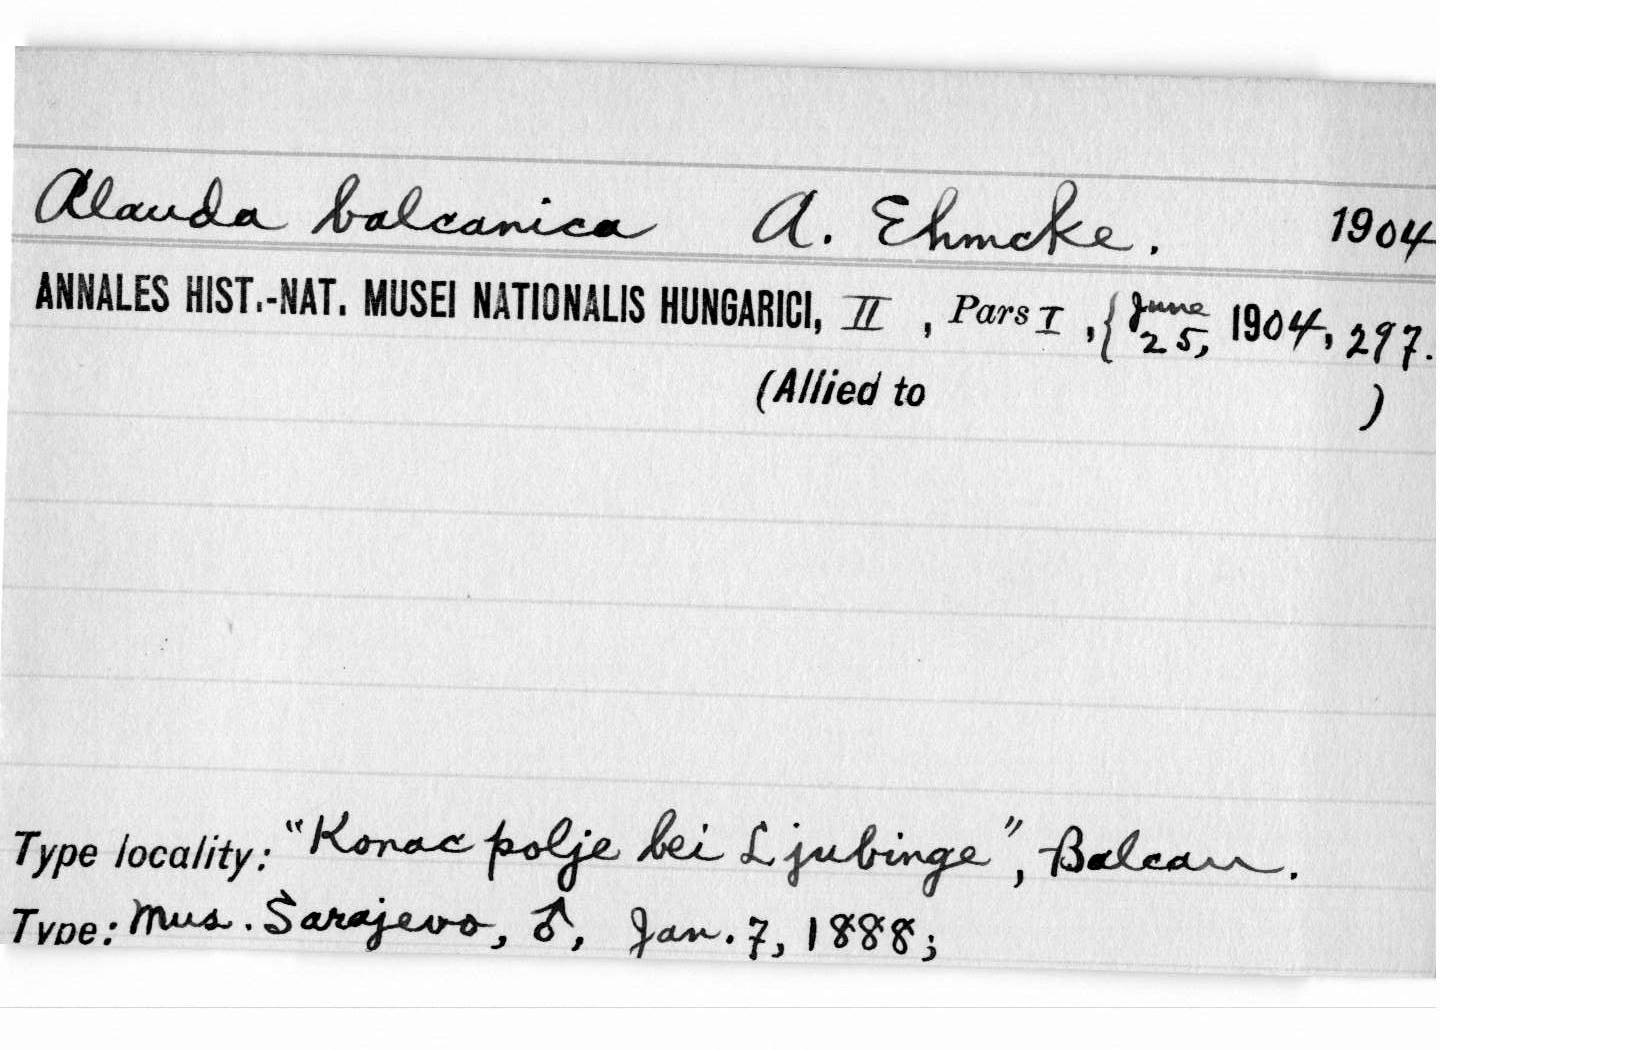 Alauda balcanica A. Ehmcke. 1904
ANNALES HIST.-NAT. MUSEI NATIONALIS HUNGARICI, II, Pars I, {June 25, 1904, 297.
(Allied to )
Type locality: "Konac polje bei Ljubinge", Balcan.
Type: Mus. Sarajevo, ♂, Jan. 7, 1888;